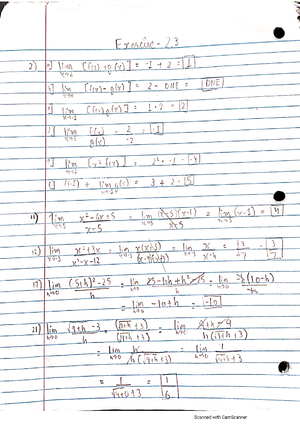 Exercise - 2.3
2) a) lim x→2 [f(x)+g(x)] = -1 + 2 = 1
b) lim x→0 [f(x) - g(x)] = 2 - DNE = DNE
c) lim x→-1 [f(x)g(x)] = 1·2 = 2
d) lim x→3 f(x)/g(x) = 2/-2 = -1
e) lim x→2 [x² f(x)] = 2² · -1 = -4
f) f(-1) + lim g(x) = 3 + 2 = 5
11) lim x→5 x²-6x+5 / x-5 = lim x→5 (x-5)(x-1) / x-5 = lim x→5 (x-1) = 4
12) lim x→-3 x²+3x / x²-x-12 = lim x→-3 x(x+3) / (x-4)(x+3) = lim x→-3 x / x-4 = -3/-7 = 3/7
17) lim h→0 (5+h)²-25 / h = lim h→0 25-10h+h²-25 / h = lim h→0 -h(10-h) / h
= lim h→0 -10+h = -10
21) lim h→0 √9+h -3 / h · (√9+h +3) / (√9+h +3) = lim h→0 9+h-9 / h(√9+h +3)
= lim h→0 h / h(√9+h +3) = lim h→0 1 / √9+h +3
= 1 / √9+0 +3 = 1/6
Scanned with CamScanner